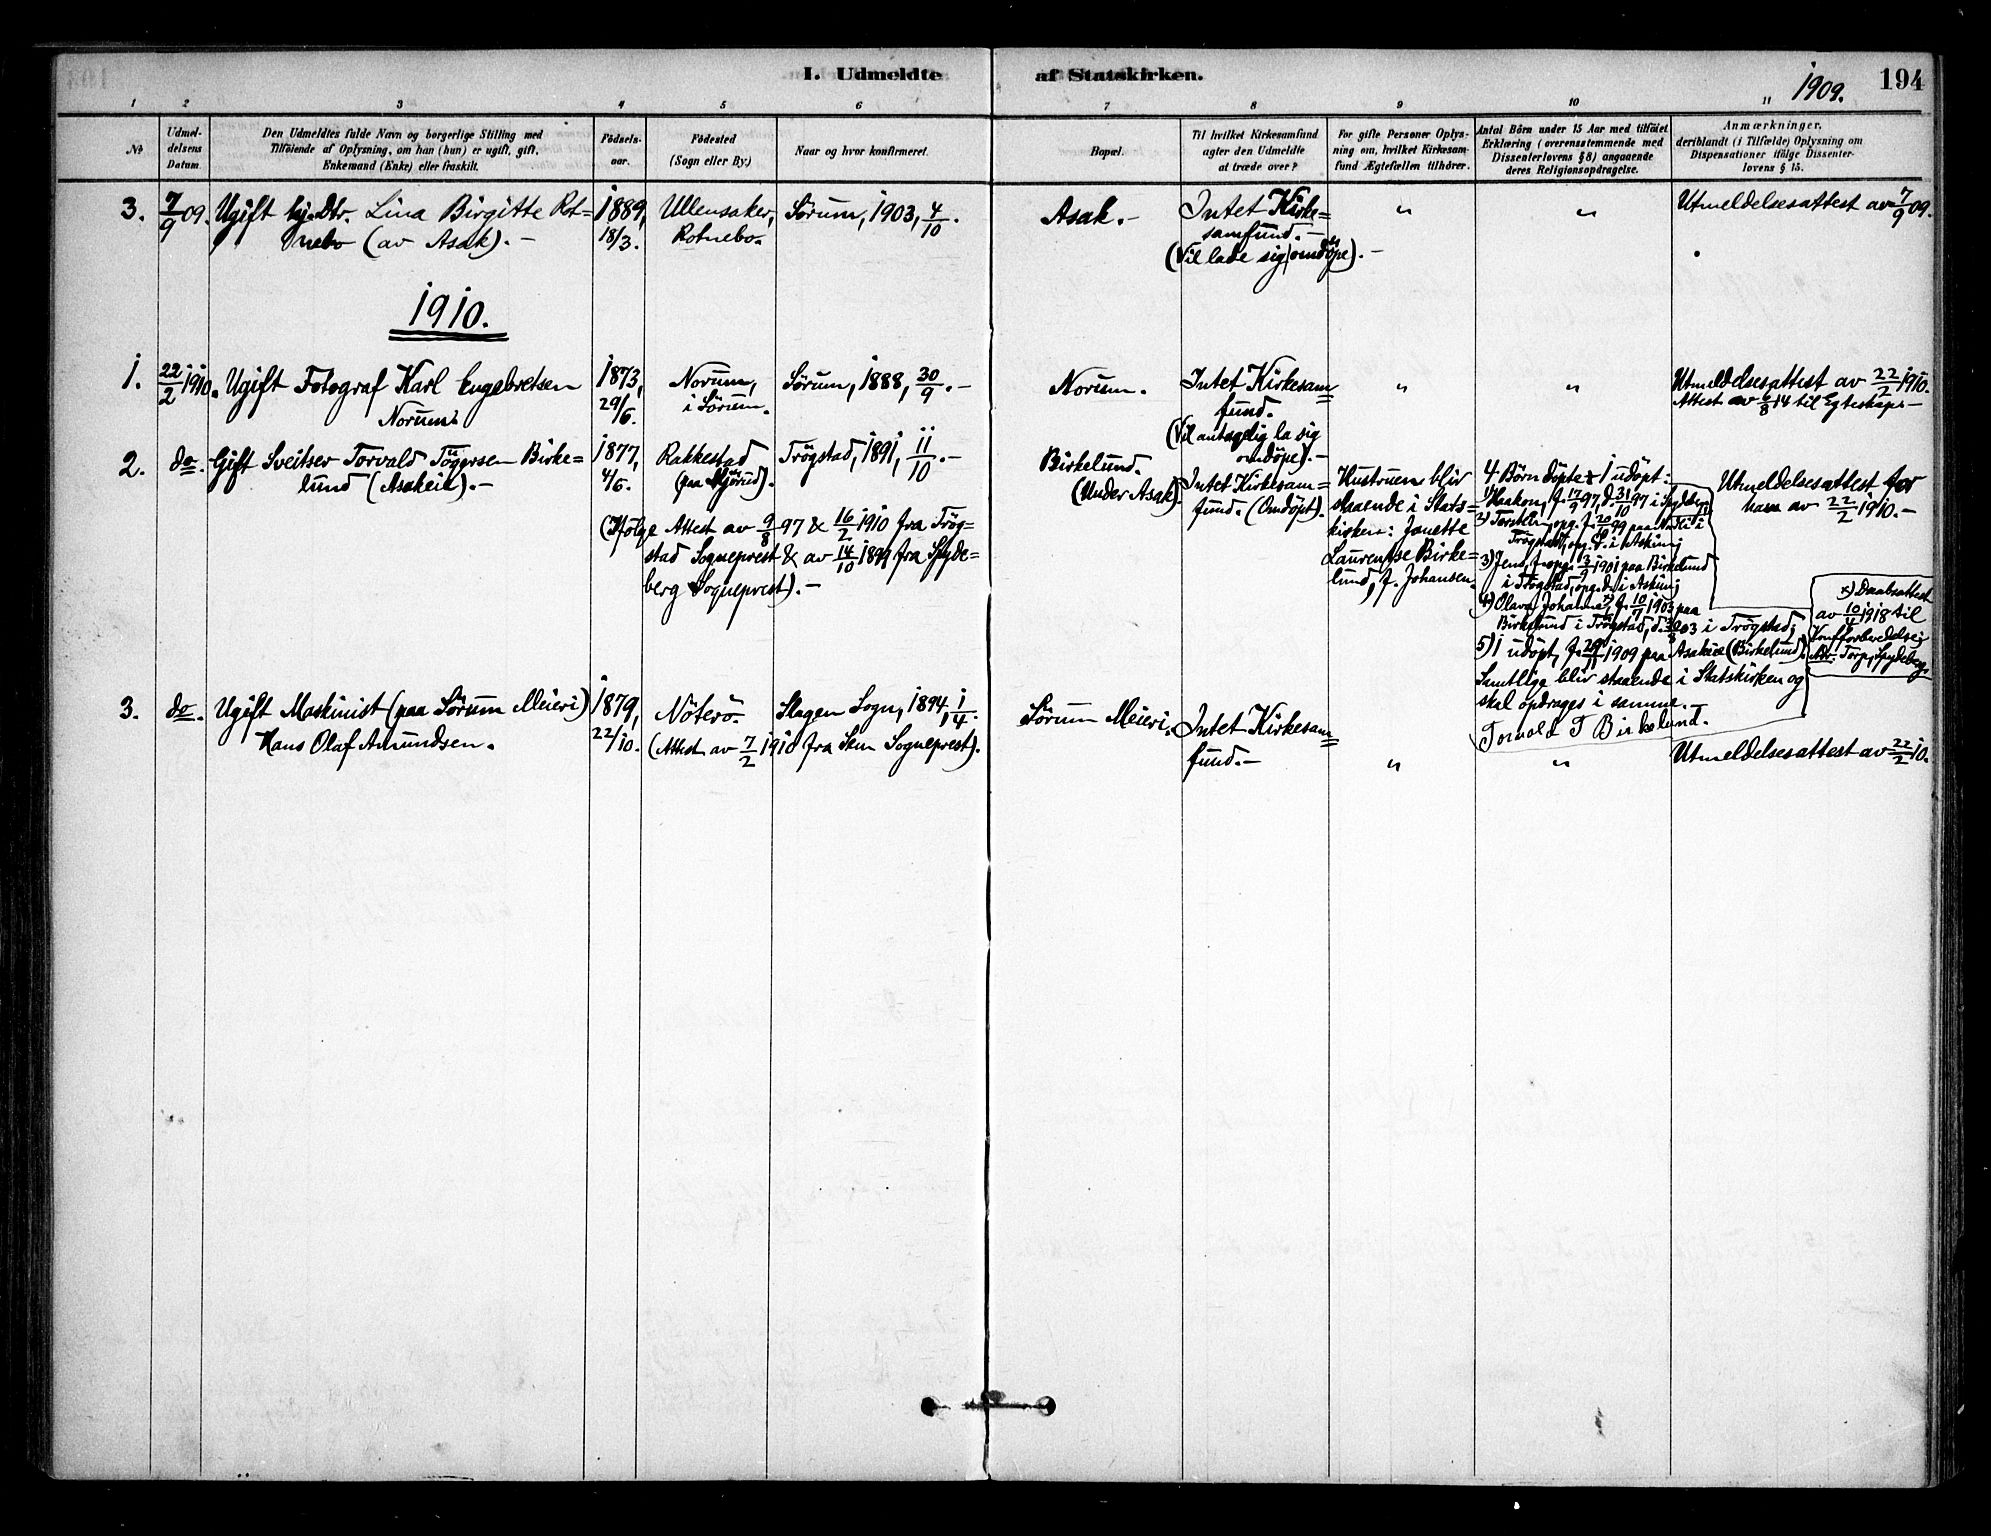 I. Udmeldte af Statskirken.
1909.
194
1 2 3 4 5 6 7 8 9 10 11
No
Udmel-
delsens
Datum.
Den Udmeldtes fulde Navn og borgerlige Stilling med
Tilføiende af Oplysning, om han (hun) er ugift, gift,
Enkemand (Enke) eller fraskilt.
Fødsels-
aar.
Fødested
(Sogn eller By.)
Naar og hvor konfirmeret.
Bopæl.
Til hvilket Kirkesamfund
agter den Udmeldte
at træde over?
For gifte Personer Oplys-
ning om, hvilket Kirkesam-
fund Ægtefællen tilhører.
Antal Börn under 15 Aar med tilföiet
Erklæring (overensstemmende med
Dissenterlovens § 8) angaaende
deres Religionsopdragelse.
Anmærkninger,
deriblandt (i Tilfælde) Oplysning om
Dispensationer ifølge Dissenter-
lovens § 15.
3.
7/9 09.
Ugift Gj. Dtr. Lina Birgitte Rot-
nebo (av Asak). -
1889,
18/3.
Ullensaker,
Rotnebo.
Sörum, 1903, 4/10.
Asak. -
Intet Kirke=
samfund. -
(Vil lade sig omdöpe). -
"
"
Utmeldelsesattest av 7/9 09.
1910.
1.
22/2 1910.
Ugift Fotograf Karl Engebretsen
Norum.
1873,
29/6.
Norum,
i Sörum.
Sörum, 1888, 30/9. -
Norum.
Intet Kirkesam=
fund.
(Vil antagelig la sig
omdöpe). -
"
"
Utmeldelsesattest av 22/2 1910.
Attest av 6/8 14 til Egteskap. -
2.
do.
Gift Sveitser Torvald Tögersen Birke=
lund (Asakeie). -
1877,
4/6.
Rakkestad
(paa Mjörud).
Trögstad, 1891, 11/10. -
(Ifølge Attest av 9/8 97 & 16/2 1910 fra Trög-
stad Sogneprest & av 14/10 1899 fra Spyde=
berg Sogneprest). -
Birkelund.
(Under Asak).
Intet Kirkesam=
fund. (Omdöpt).
Hustruen bliv
staaende i Stats=
kirken: Janette
Laurentse Birke=
lund, f. Johansen.
4 Börn döpte & 1 udöpt:
1) Haakon, f. 17/9 97, d. 31/10 97 i Spydeberg
Trögstad, og d. i Askim;
3) Jens, f. opg. 3/9 1901 paa Birkelund
i Trögstad, opg. d. i Askim;
4) Olava Johanne, x) f. 10/7 1903 paa
Birkelund i Trögstad, d. 30/8 03 i Trögstad;
5) 1 udöpt, f. 20/11 1909 paa Asakeie (Birkelund).
Samtlige bliv staaende i Statskirken og
skal opdrages i samme. -
Torvald T Birkelund.
Utmeldelsesattest for
ham av 22/2 1910. -
x) Daabsattest
av 10/4 1918 til
Konf.forberedelse;
Adr. Torp, Spydeberg.
3.
do.
Ugift Maskinist (paa Sörum Meieri)
Hans Olaf Amundsen.
1879,
22/10.
Nöterö.
Slagen Sogn, 1894, 1/4.
(Attest av 7/2 1910 fra Sem Sogneprest).
Sörum Meieri.
Intet Kirkesam=
fund. -
"
"
Utmeldelsesattest av 22/2 10.